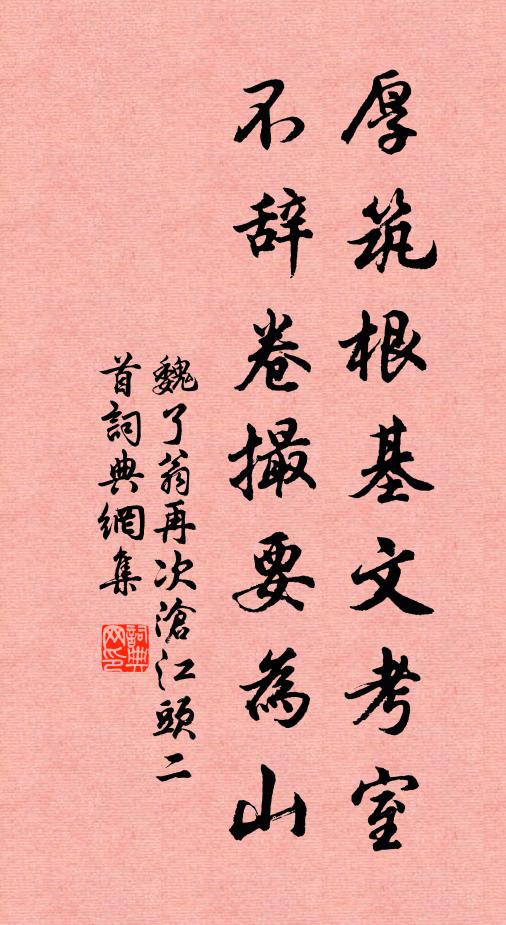 厚筑根基文考室
不辞卷撮要為山
魏了翁再次滄江頭二
首詞典網集
詞典
网印